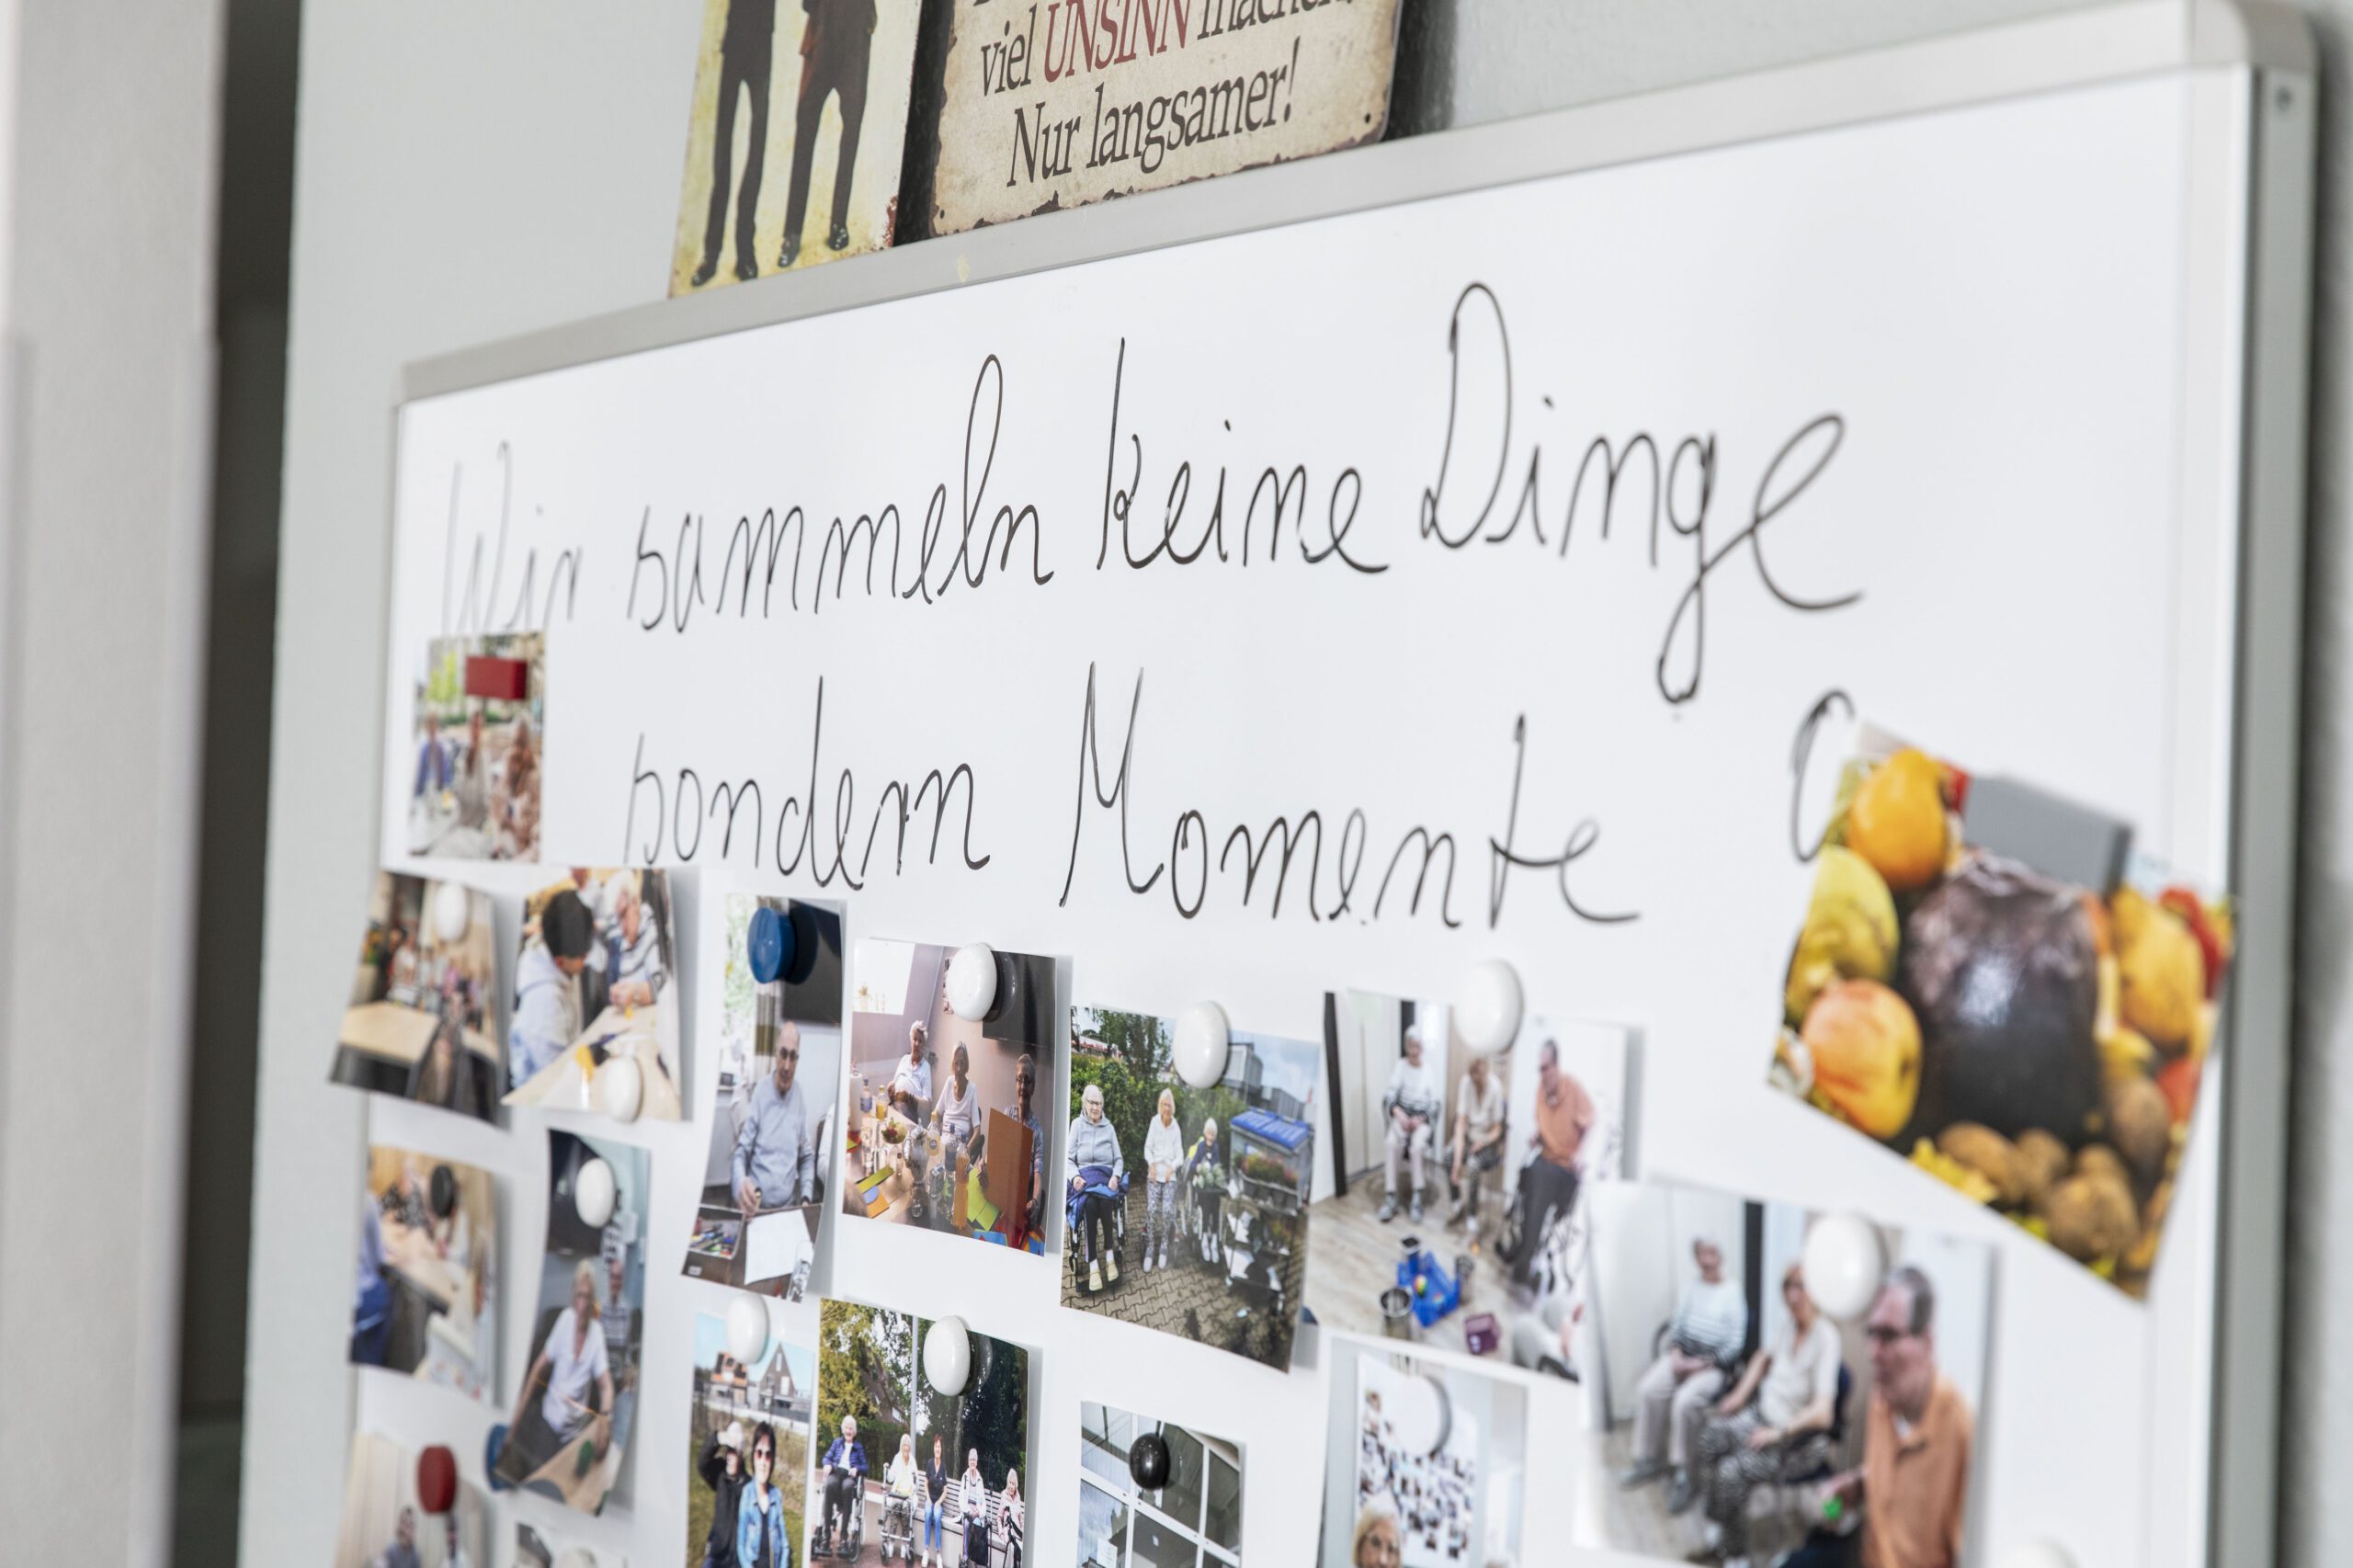 viel UNSINN machen.
Nur langsamer!
Wir sammeln keine Dinge
sondern Momente